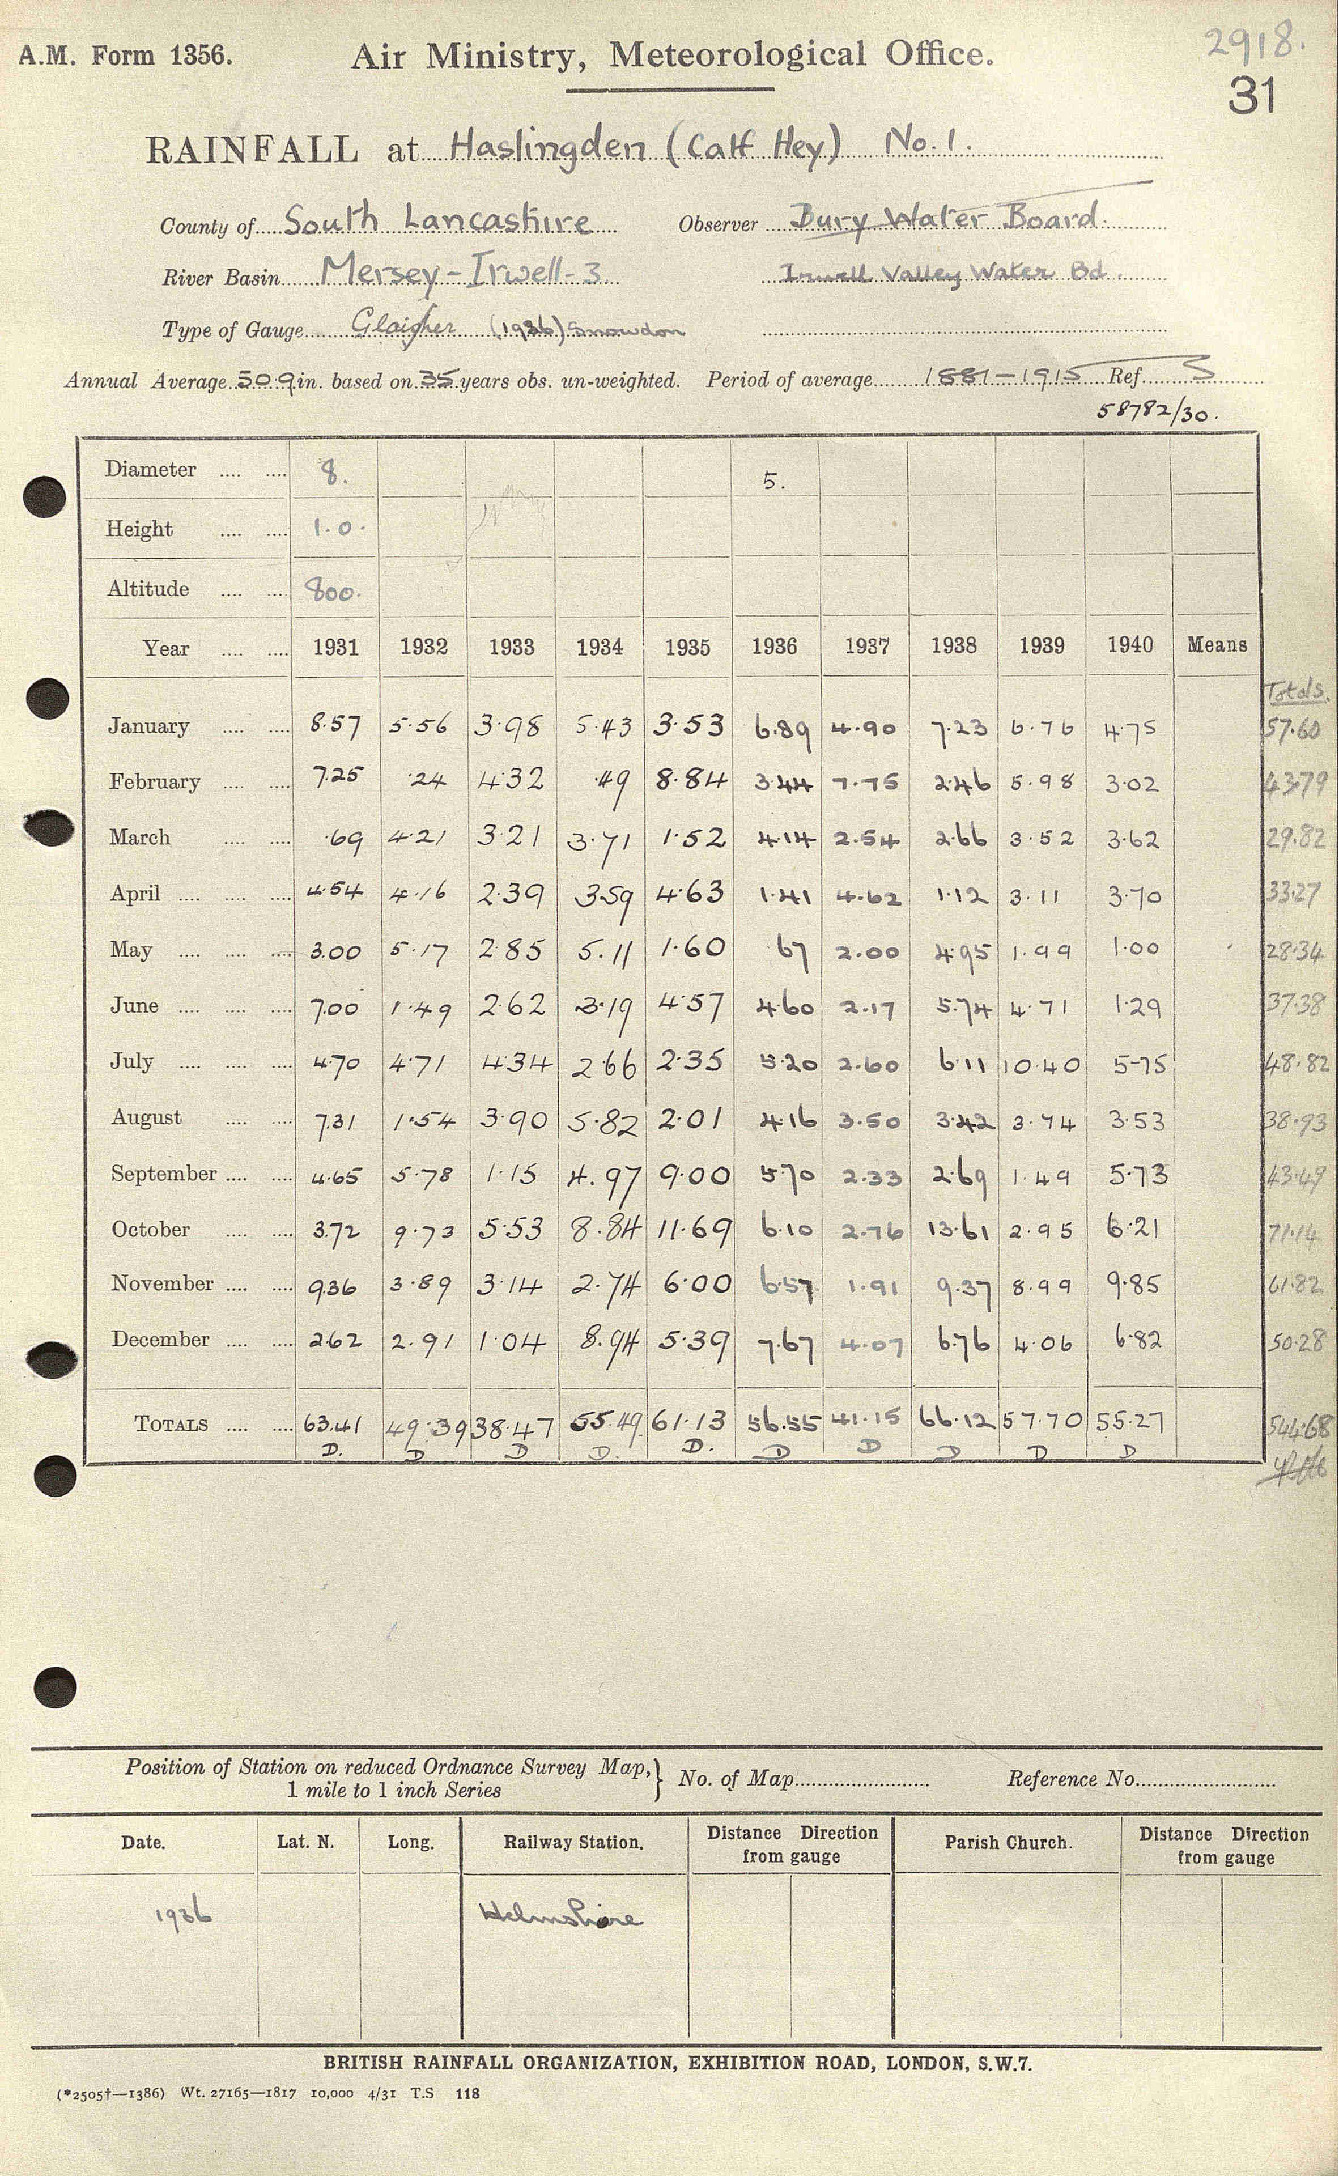 2918.
A.M. Form 1356. Air Ministry, Meteorological Office.
31
RAINFALL at Haslingden (Calf Hey) No. 1.
County of South Lancashire Observer Bury Water Board.
River Basin Mersey - Irwell - 3 Irwell Valley Water Bd.
Type of Gauge Glaisher (1936) Snowdon
Annual Average 50.9 in. based on 35 years obs. un-weighted. Period of average 1881-1915 Ref. 3
58782/30.
Diameter .... .... 8. 5.
Height .... .... 1.0.
Altitude .... .... 800.
Year .... .... 1931 1932 1933 1934 1935 1936 1937 1938 1939 1940 Means
Totals.
January .... .... 8.57 5.56 3.98 5.43 3.53 6.89 4.90 7.23 6.76 4.75 57.60
February .... .... 7.25 .24 4.32 .49 8.84 3.44 7.75 2.46 5.98 3.02 43.79
March .... .... .69 4.21 3.21 3.71 1.52 4.14 2.54 2.66 3.52 3.62 29.82
April .... .... .... 4.54 4.16 2.39 3.59 4.63 1.41 4.62 1.12 3.11 3.70 33.27
May .... .... .... 3.00 5.17 2.85 5.11 1.60 .67 2.00 4.95 1.99 1.00 28.34
June .... .... .... 7.00 1.49 2.62 3.19 4.57 4.60 2.17 5.74 4.71 1.29 37.38
July .... .... .... 4.70 4.71 4.34 2.66 2.35 5.20 2.60 6.11 10.40 5.75 48.82
August .... .... 7.31 1.54 3.90 5.82 2.01 4.16 3.50 3.42 3.74 3.53 38.93
September .... .... 4.65 5.78 1.15 4.97 9.00 5.70 2.33 2.69 1.49 5.73 43.49
October .... .... 3.72 9.73 5.53 8.84 11.69 6.10 2.76 13.61 2.95 6.21 71.14
November .... .... 9.36 3.89 3.14 2.74 6.00 6.57 1.91 9.37 8.99 9.85 61.82
December .... .... 2.62 2.91 1.04 8.94 5.39 7.67 4.07 6.76 4.06 6.82 50.28
TOTALS .... .... 63.41 49.39 38.47 55.49 61.13 56.55 41.15 66.12 57.70 55.27 544.68
D. D D D. D. D D D D D
Position of Station on reduced Ordnance Survey Map,
1 mile to 1 inch Series
No. of Map Reference No.
Date. Lat. N. Long. Railway Station. Distance Direction from gauge Parish Church. Distance Direction from gauge
1936 Helmshore
BRITISH RAINFALL ORGANIZATION, EXHIBITION ROAD, LONDON, S.W.7.
(*2505†—1386) Wt. 27165—1817 10,000 4/31 T.S 118